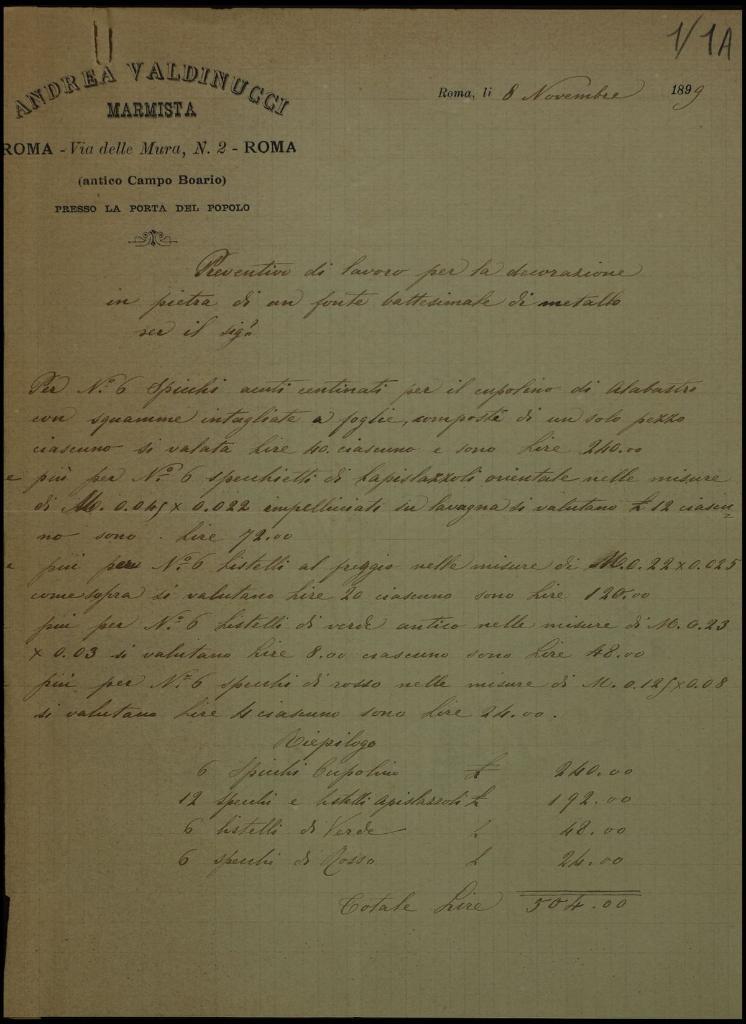 1/1A
ANDREA VALDINUCCI
MARMISTA
ROMA - Via delle Mura, N. 2 - ROMA
(antico Campo Boario)
PRESSO LA PORTA DEL POPOLO
Roma, li 8 Novembre 1899
Preventivo di lavoro per la decorazione
in pietra di un fonte battesimale di metallo
per il sigr
Per No 6 Spicchi acuti centinati per il cupolino di Alabastro
con squamme intagliate a foglie, composta di un solo pezzo
ciascuno si valuta Lire 40. ciascuno e sono Lire 240.00
e più per No 6 specchietti di Lapislazzoli orientale nelle misure
di M. 0.045 x 0.022 impelliciati su lavagna si valutano £ 12 ciascu-
no sono . Lire 72.00
e più per No 6 Listelli al freggio nelle misure di M. 0.22 x 0.025
come sopra si valutano Lire 20 ciascuno sono Lire 120.00
più per No 6 Listelli di verde antico nelle misure di M. 0.23
x 0.03 si valutano Lire 8.00 ciascuno sono Lire 48.00
più per No 6 specchi di rosso nelle misure di M. 0.125 x 0.08
si valutano Lire 4 ciascuno sono Lire 24.00.
Riepilogo
6 Spicchi Cupolino £ 240.00
12 specchi e listelli apislazzoli £ 192.00
6 listelli di Verde £ 48.00
6 specchi di Rosso £ 24.00
Totale Lire 504.00